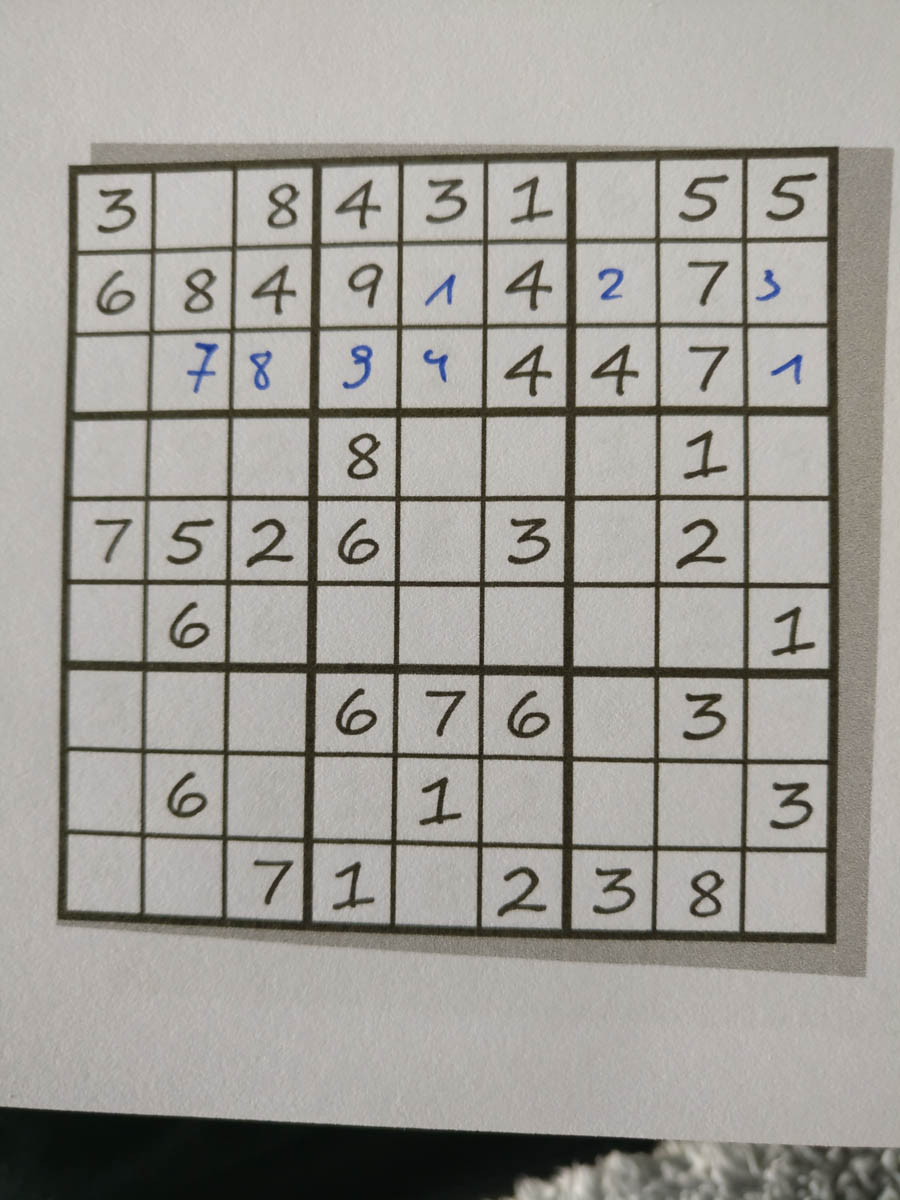 3 8 4 3 1 5 5
6 8 4 9 1 4 2 7 3
7 8 9 4 4 4 7 1
8 1
7 5 2 6 3 2
6 1
6 7 6 3
6 1 3
7 1 2 3 8